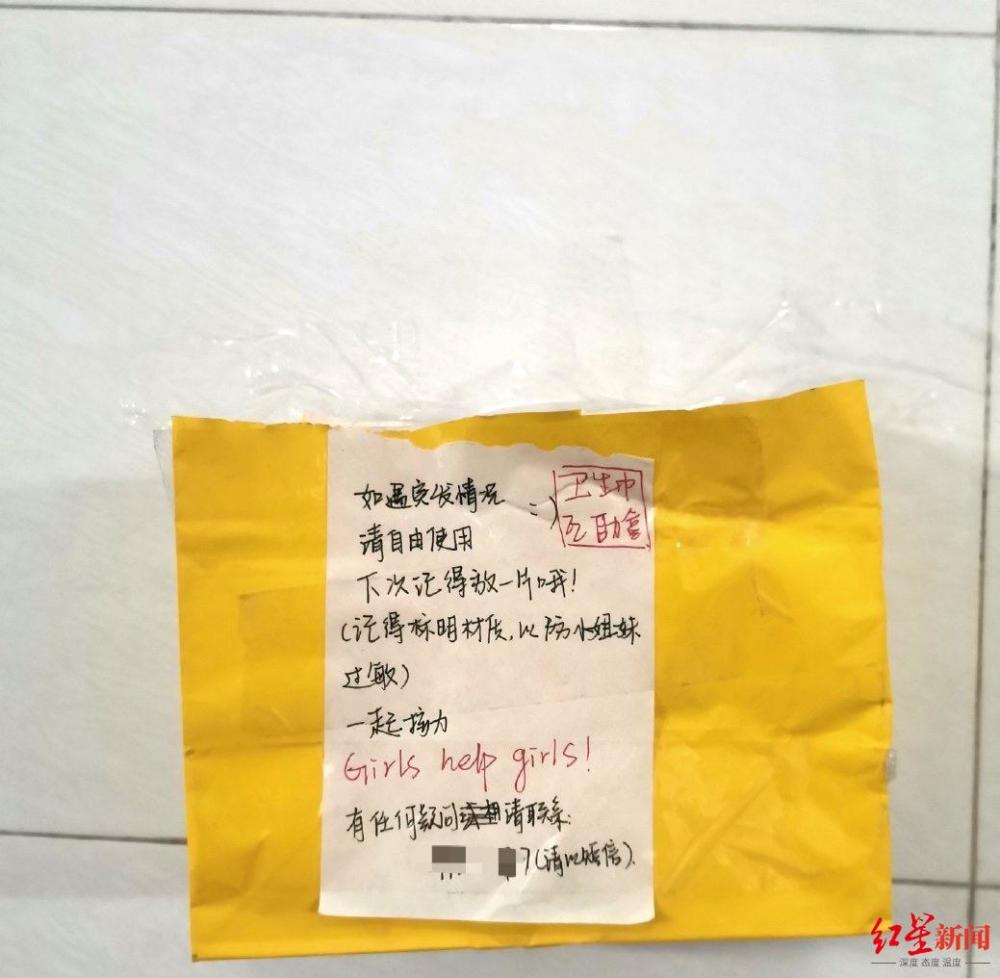 如遇突发情况 =)
卫生巾
互助盒
请自由使用
下次记得放一片哦!
(记得标明材质,以防小姐妹
过敏)
一起接力
Girls help girls!
有任何疑问请联系:
7(请以短信)
红星新闻
深度 态度 温度